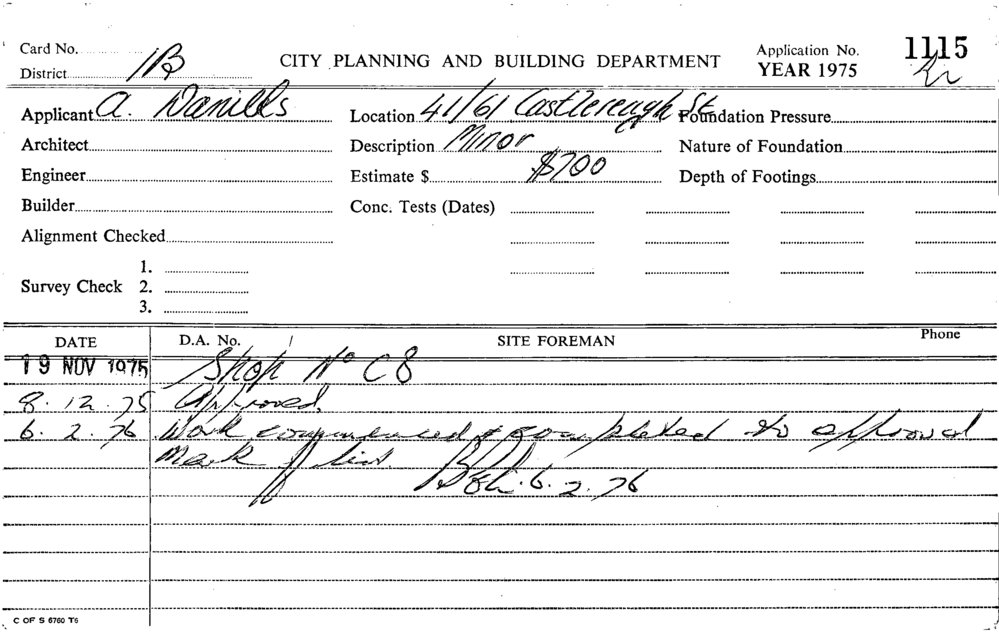 Card No.
District 1B
CITY PLANNING AND BUILDING DEPARTMENT
Application No. 1115
YEAR 1975
Applicant A. Danills
Location 41/61 Castlereagh St
Foundation Pressure
Architect
Description Minor
Nature of Foundation
Engineer
Estimate $ $700
Depth of Footings
Builder
Conc. Tests (Dates)
Alignment Checked
Survey Check
1.
2.
3.
DATE D.A. No. / SITE FOREMAN Phone
19 NOV 1975 Shop No C8
8. 12. 75 Approved.
6. 2. 76 Work commenced & completed to approval
Mark f 6. 2. 76
C OF S 6760 T6